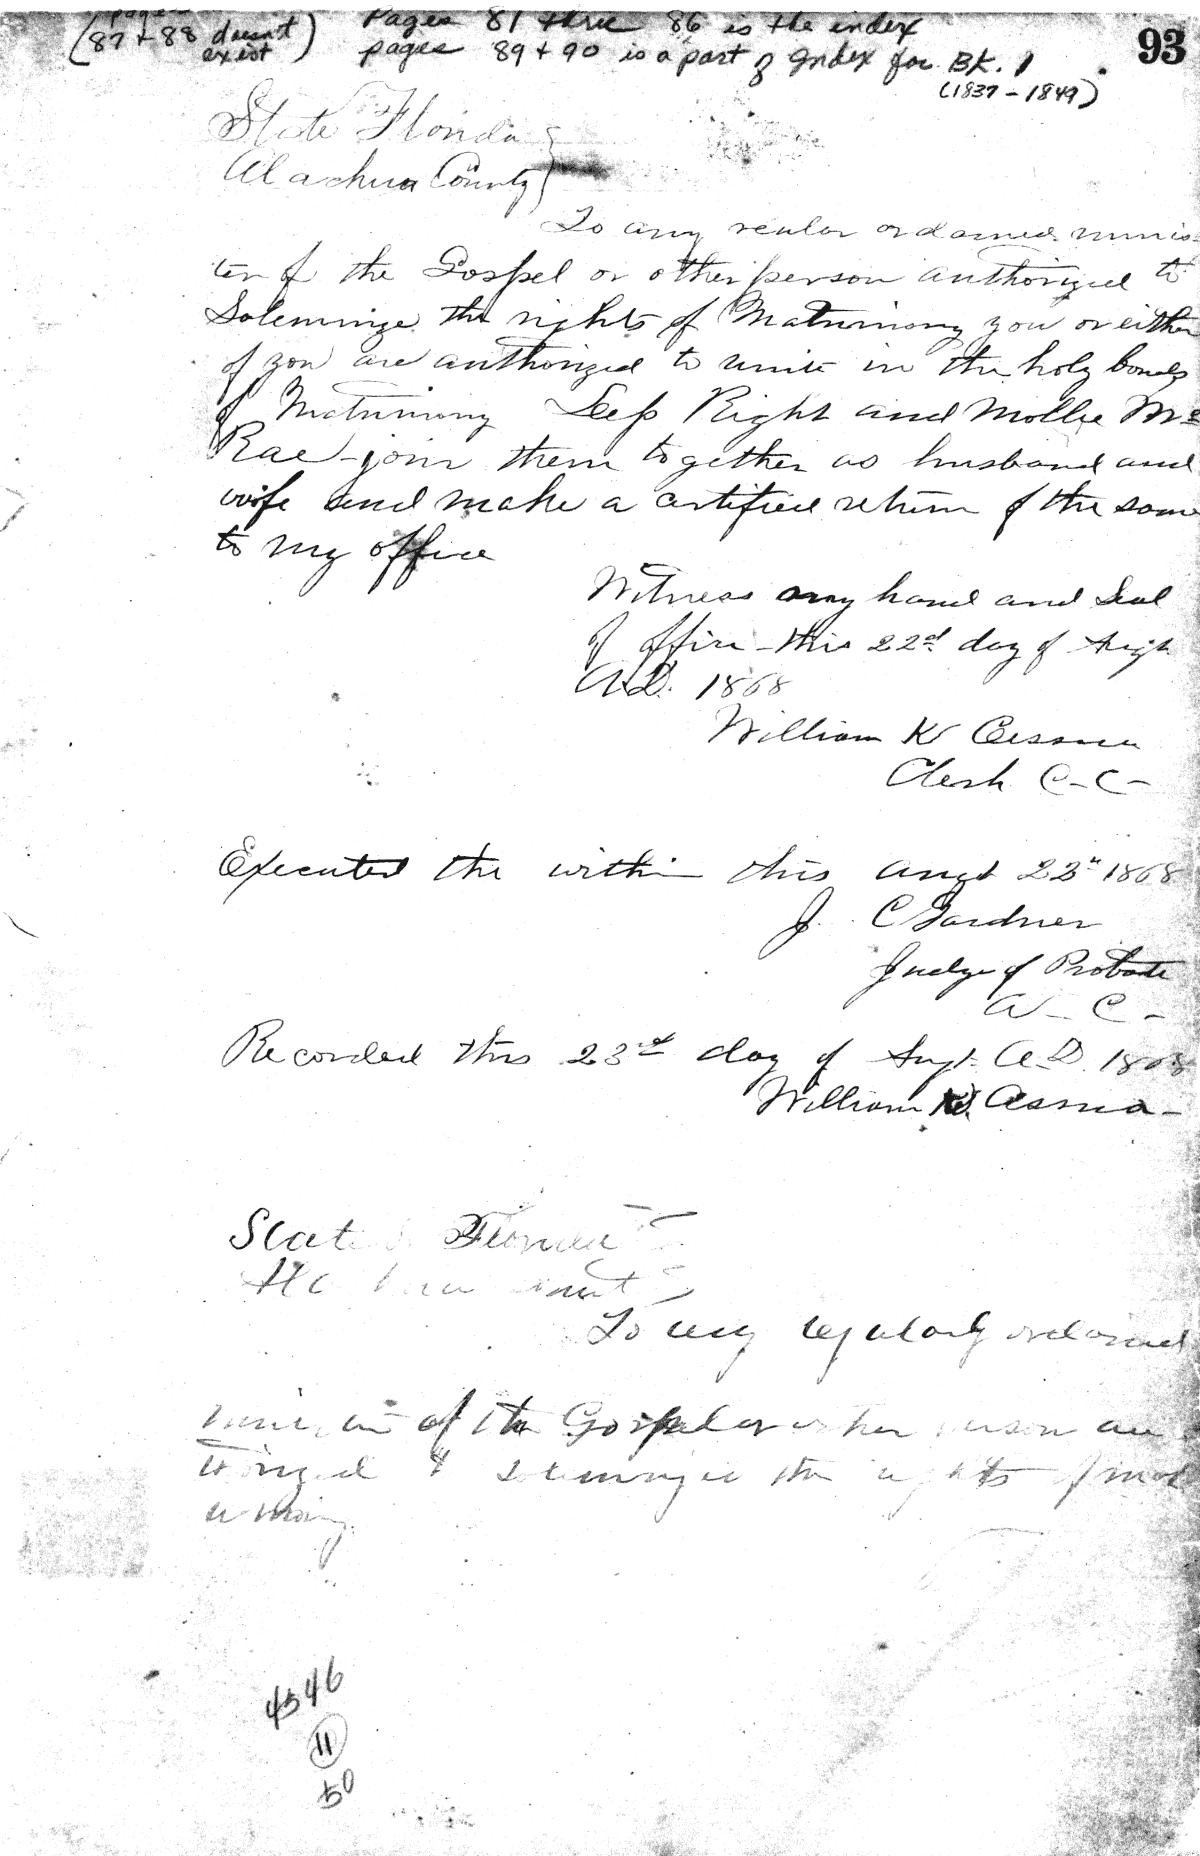 pages
(87 + 88 doesn't
exist)
Pages 81 thru 86 is the index
pages 89 + 90 is a part of Index for BK. 1
(1837 - 1849)
93
State Florida
Alachua County
To any reular ordained minis
ter of the Gospel or other person authorized to
Solemnize the rights of Matrimony you or either
of you are authorized to unite in the holy bonds
of Matrimony Right and Mollie Mc
Rae - join them together as husband and
wife and make a certified return of the same
to my office
Witness my hand and Seal
of office - this 22nd day of
A.D. 1868
William K Cessna
Clerk C- C-
Executed the within this Augt 1868
J. C Gardner
Judge of Probate
A - C -
Recorded this 23rd day of A.D. 1868
William K Cessna -
State Florida
To any regularly ordained
of the Gospel or other person au
thorized solemnize the rights of mat
rimony
4546
11
50